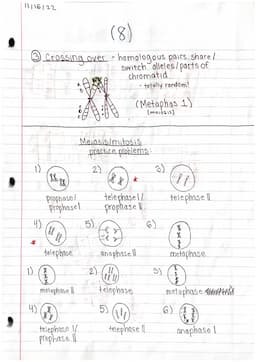 11/16/22
(8)
③ Crossing over - homologous pairs share/
switch alleles/parts of
chromatid
- totally random!
(Metaphas 1)
(meiosis)
Meiosis/mitosis
practice problems
1) 2) 3)
prophase/ telephase 1/ telephase II
prophase 1 prophase II
4) 5) 6)
telephase anaphase II metaphase
1) 2) 3)
metaphase II telephase metaphase
4) 5) 6)
telephase 1/ telephase II anaphase 1
prophase II